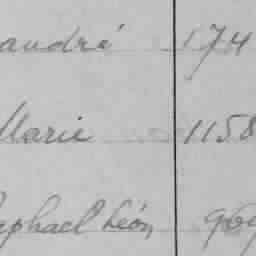 andré 174
Marie 1158
aphael Léon 969